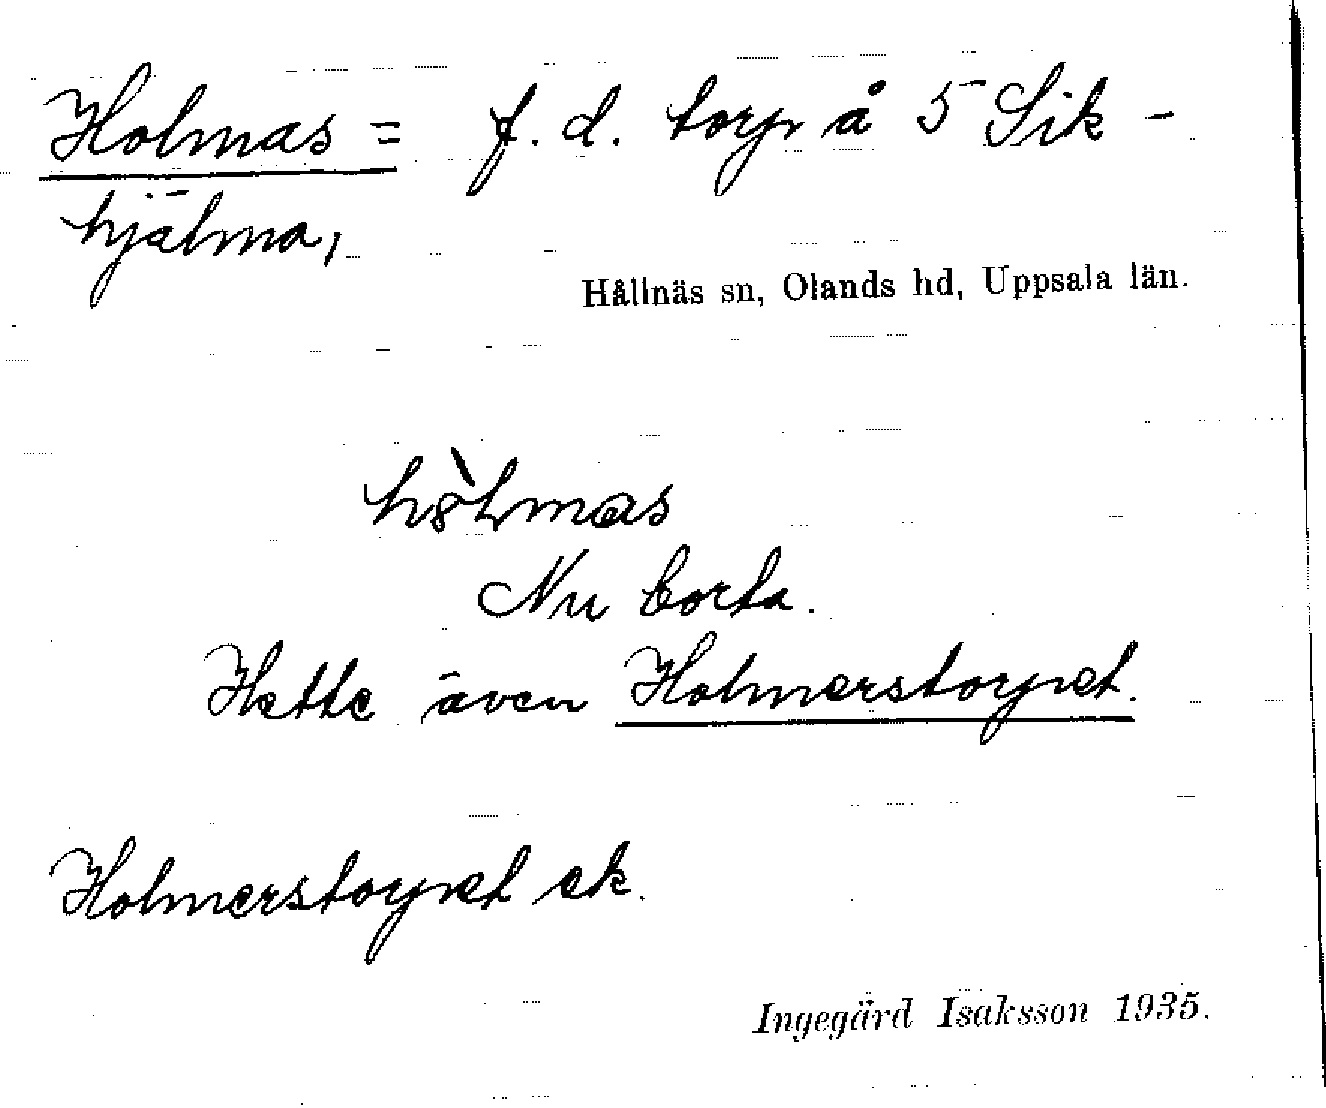 Holmas = f. d. torp å 5 Sik-
hjälma,
Hållnäs sn, Olands hd, Uppsala län.
Nu borta.
Hette även Holmerstorpet.
Holmerstorpet ek.
Ingegärd Isaksson 1935.